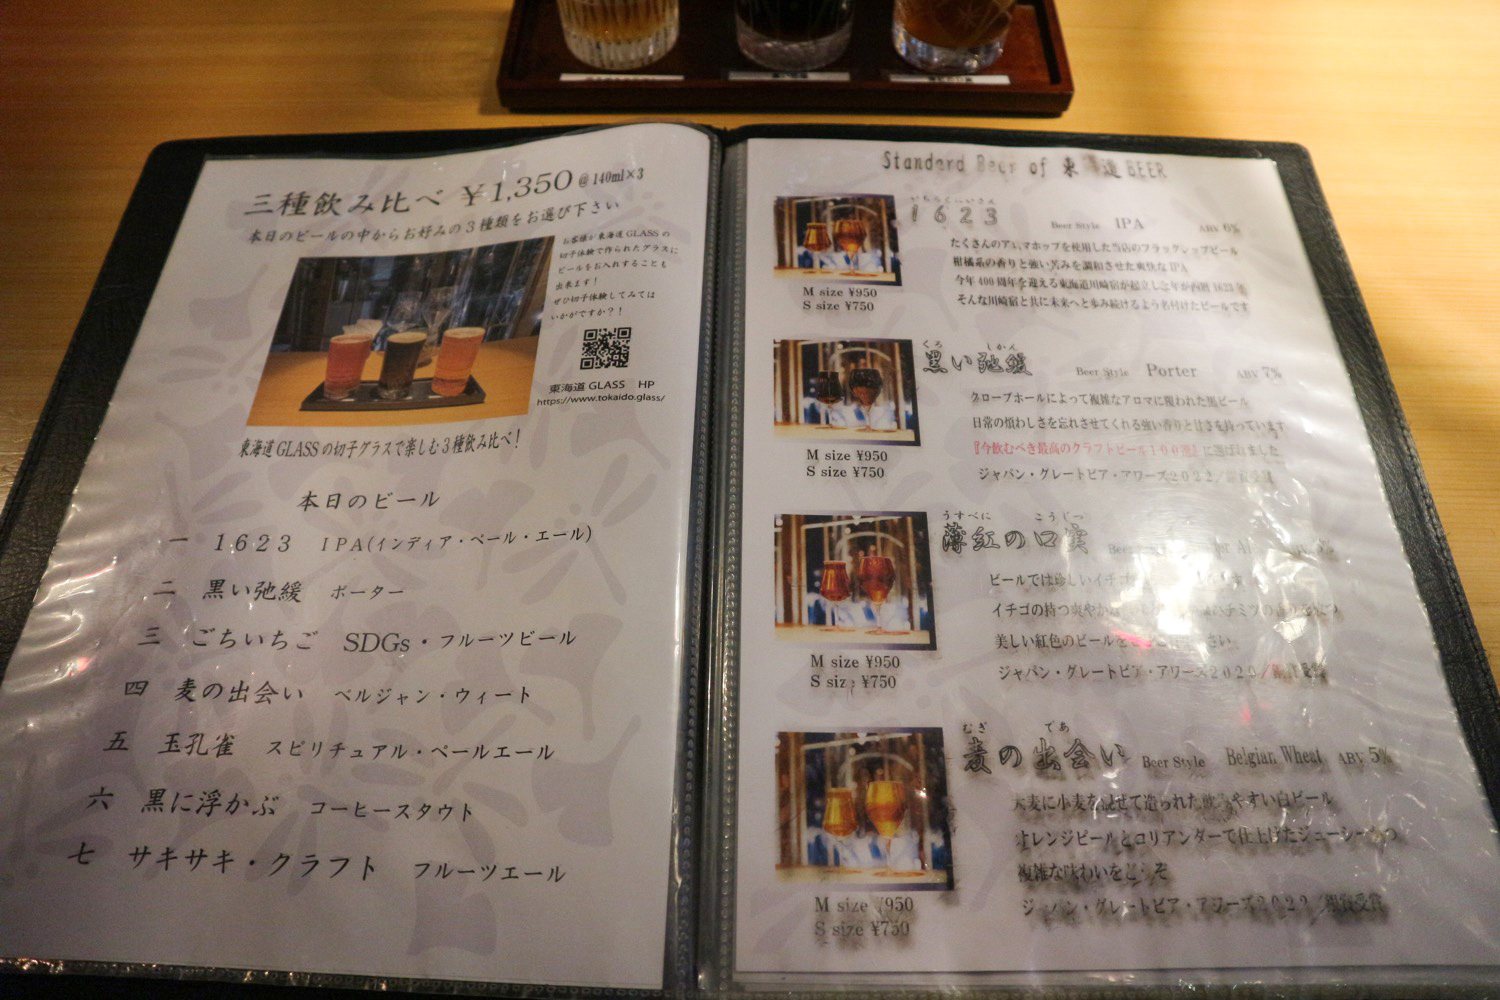 三種飲み比べ ¥1,350 @140ml×3
本日のビールの中からお好みの3種類をお選び下さい
お客様が東海道GLASSの
切子体験で作られたグラスに
ビールをお入れすることも
出来ます!
ぜひ切子体験してみては
いかがですか?!
東海道 GLASS HP
https://www.tokaido.glass/
東海道GLASSの切子グラスで楽しむ3種飲み比べ!
本日のビール
一 1623 IPA(インディア・ペール・エール)
二 黒い弛緩 ポーター
三 ごちいちご SDGs・フルーツビール
四 麦の出会い ベルジャン・ウィート
五 玉孔雀 スピリチュアル・ペールエール
六 黒に浮かぶ コーヒースタウト
七 サキサキ・クラフト フルーツエール
Standard Beer of 東 道 BEER
1623 Beer Style IPA ABV 6%
たくさんのアロマホップを使用した当店のフラッグシップビール
柑橘系の香りと強い苦みを調和させた爽快なIPA
今年400周年を迎える東海道川崎宿が起立した年が西暦1623年
そんな川崎宿と共に未来へと歩み続けるよう名付けたビールです
M size ¥950
S size ¥750
くろ しかん
黒い弛緩 Beer Style Porter ABV 7%
クローブホールによって複雑なアロマに覆われた黒ビール
日常の煩わしさを忘れさせてくれる強い香りと甘さを持っています
『今飲むべき最高のクラフトビール100選』に選ばれました
ジャパン・グレートビア・アワーズ2022/銀賞受賞
M size ¥950
S size ¥750
うすべに こうじつ
薄紅の口実
ビールでは珍しいイチゴ
イチゴの持つ爽やか ハチミツの香り
美しい紅色のビールを さい。
ジャパン・グレートビア・アワーズ2020/銀賞受賞
M size ¥950
S size ¥750
むぎ であ
麦の出会い Beer Style Belgian Wheat ABV 5%
大麦に小麦を混ぜて造られた飲みやすい白ビール
オレンジピールとコリアンダーで仕上げたジューシーかつ
複雑な味わいをどうぞ
ジャパン・グレートビア・アワーズ2022/銀賞受賞
M size ¥950
S size ¥750